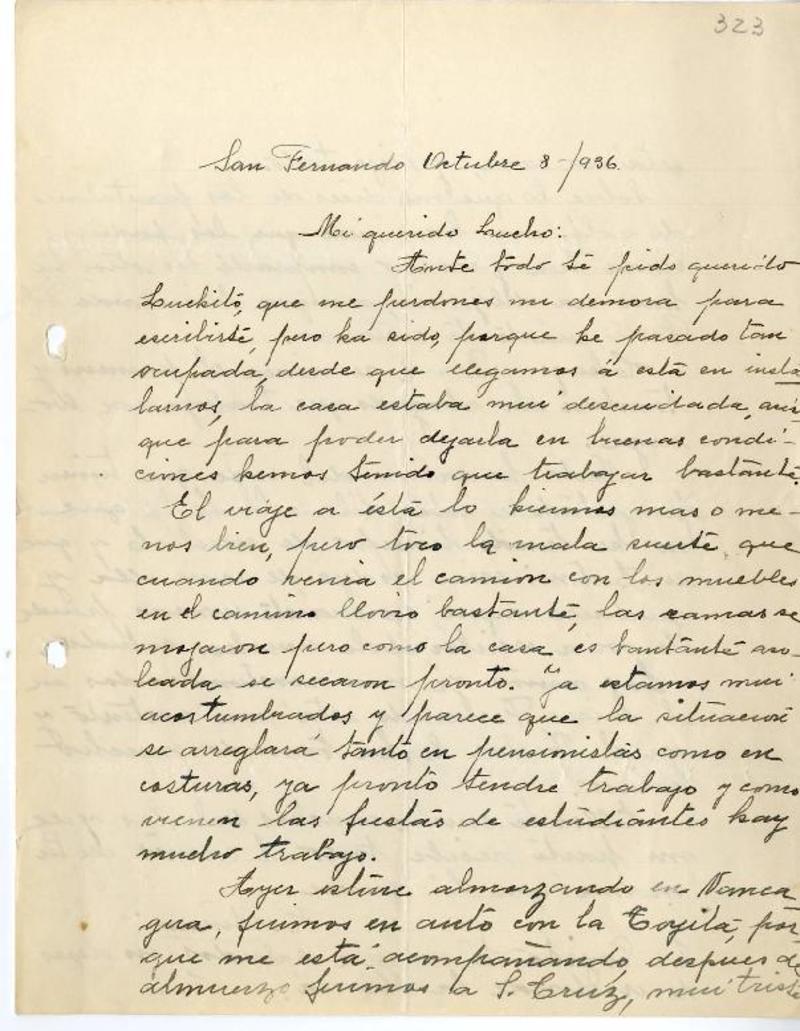 323
San Fernando Octubre 8-/936.
Mi querido Lucho:
Ante todo té pido querido
Luchitó, que me perdones mi demora para
escribirté, pero ha sido, porque he pasado tan
ocupada, desde que llegamos á está en insta
larnos, la casa estaba mui descuidada, asi-
que para poder dejarla en buenas condi-
ciones hemos ténido que trabajar bastanté.
El viaje a ésta lo hicimos mas o me-
nos bien, pero toco la mala suerté que
cuando venia el camion con los muebles
en el camino llovio bastanté, las camas se
mojaron pero como la casa es bantánté aso-
leada se secaron pronto. Ya estamos mui
acostumbrados y parece que la situacion
se arreglará tánto en pensionistás como en
costuras, ya prontó tendre trabajo y como
vienen las fiestás de estudiántes hay
mucho trabajo.
Ayer estuve almorzando en Nanca
gua, fuimos en autó con la Goyitá, por
que me está acompañando, despues de
almuerzo fuimos a S. Cruz, mui tristé